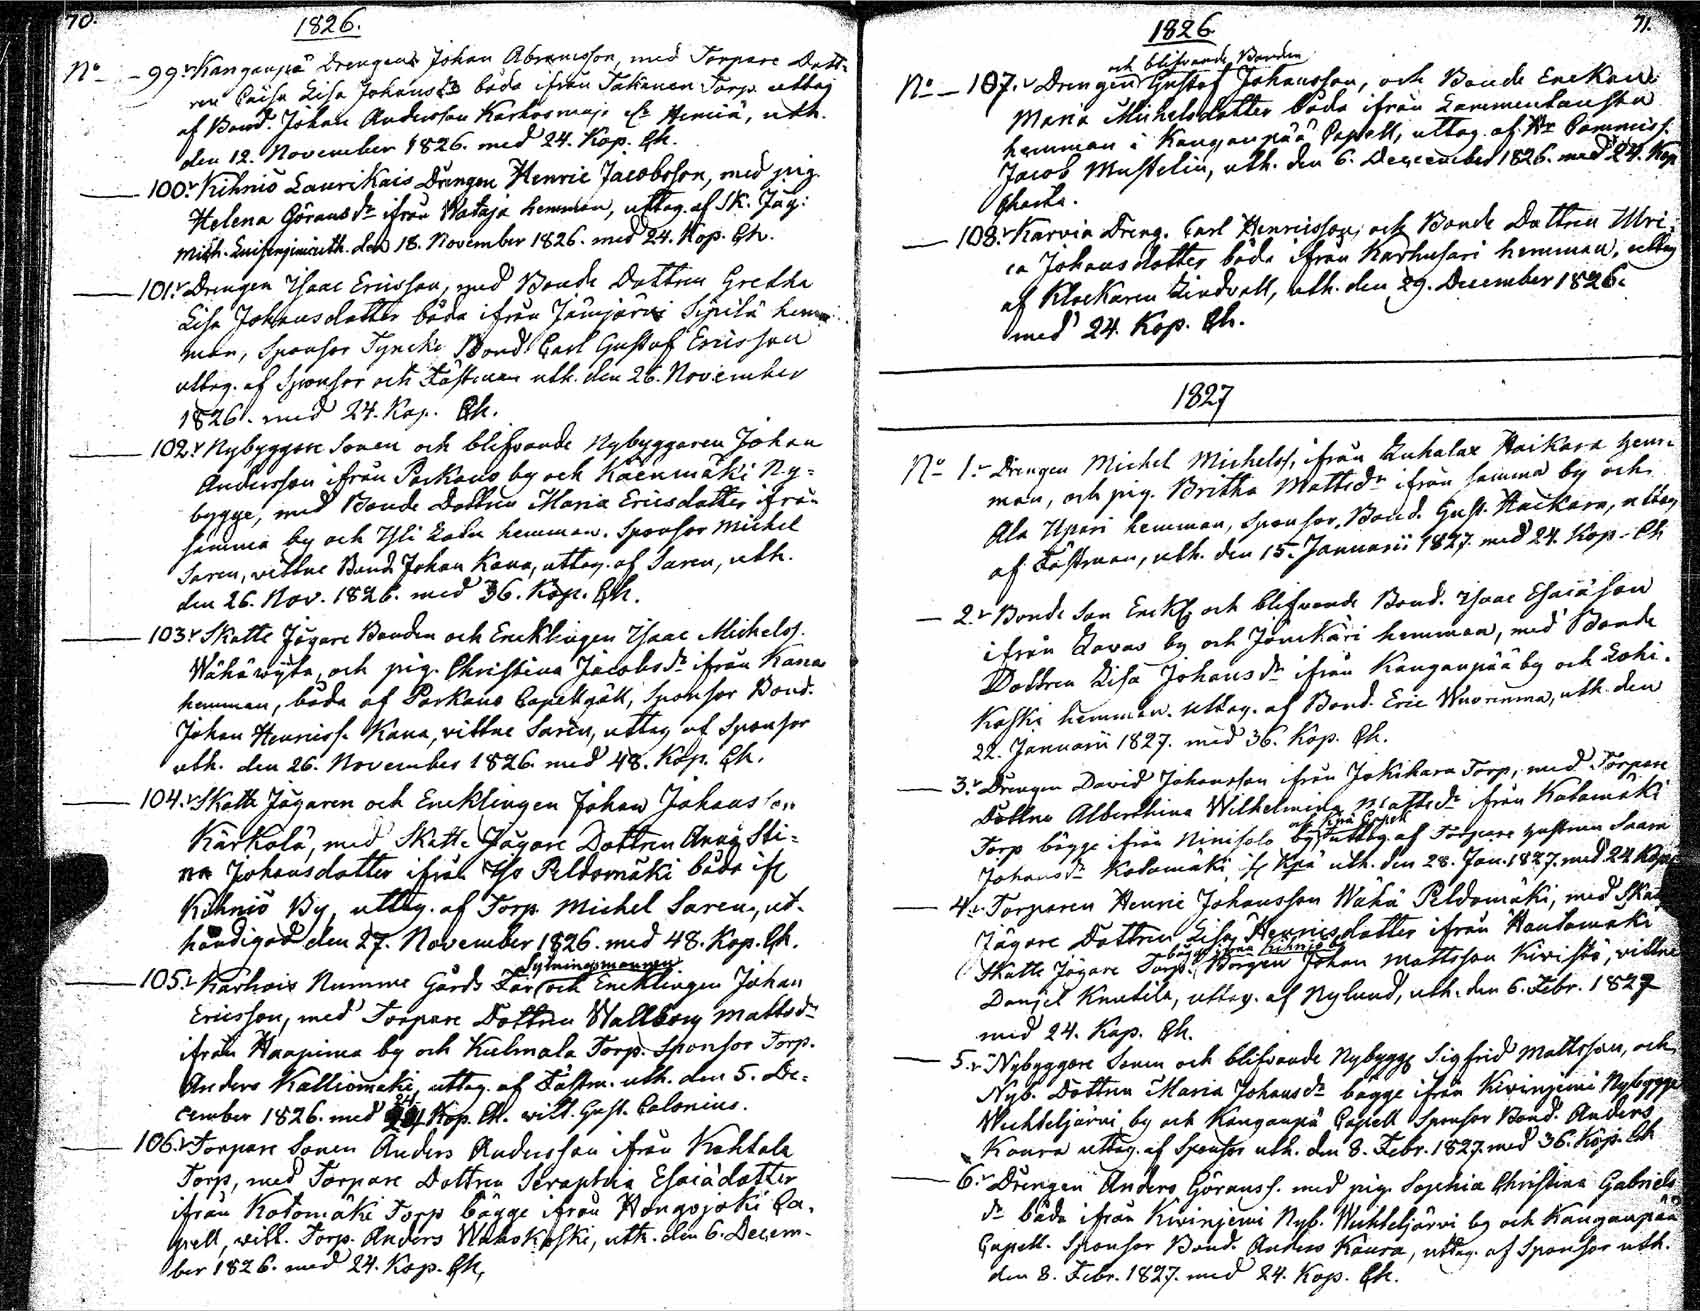 70.
1826.
No 99. Kanganpä Drengen Johan Abramsson, med Torpare Dott-
ren Caisa Lisa Johansdr båda ifrån Takanen Torp. uttag
af Bond. Johan Andersson Karhosmaja Hemiä, uth.
den 12. November 1826. med 24. Kop. Ch.
100. Kihniö Laurikais Drengen Henric Jacobsson, med pig.
Helena Göransdr ifrån Wataja hemman, uttag. af Sk. Jäg:
Mich. uth. den 18. November 1826. med 24. Kop. Ch.
101. Drengen Isaac Ericsson, med Bonde Dottren Gretha
Lisa Johansdotter båda ifrån Jämijärvi Sipilä hem-
man, Sponsor Tyncke Bond. Carl Gustaf Ericsson
uttag. af Sponsor och Fästman uth. den 26. November
1826. med 24. Kop. Ch.
102. Nybyggare Sonen och blifvande Nybyggaren Johan
Andersson ifrån Parkano by och Käenmäki Ny-
bygge, med Bonde Dottren Maria Ericsdotter ifrån
samma by och Yli Ladu hemman. Sponsor Michel
Saren, vittne Bond. Johan Kana, uttag. af Saren, uth.
den 26. Nov. 1826. med 36. Kop. Ch.
103. Skatte Jägare Bonden och Encklingen Isaac Michelss.
Wähäwyta, och pig. Christina Jacobsdr ifrån Kana
hemman, båda af Parkano Capellgäll, Sponsor Bond.
Johan Henricss. Kana, vittne Saren, uttag af Sponsor
uth. den 26. November 1826 med 48. Kop. Ch.
104. Skatte Jägaren och Encklingen Johan Johansson
Kärkölä, med Skatte Jägare Dottren Anna Sti-
na Johansdotter ifrån Iso Peldomäki båda if
Kihniö By, uttag. af Torp. Michel Saren, ut-
händigad den 27. November 1826. med 48. Kop. Ch.
Sytningsmannen
105. Karhois Numme Gårds Far och Encklingen Johan
Ericsson, med Torpare Dottren Wallborg Mattsdr
ifrån Haapima by och Kulmala Torp. Sponsor Torp.
Anders Kalliomäki, uttag. af Fästm. uth. den 5. De-
24
cember 1826. med Kop. Ch. witt. Gust. Calonius.
106. Torpare Sonen Anders Andersson ifrån Kohtala
Torp, med Torpare Dottren Seraphia Esaiädotter
ifrån Kotomäki Torp bägge ifrån Hongojoki Ca-
pell, vitt. Torp. Anders Wahokoski, uth. den 6. Decem-
ber 1826. med 24. Kop. Ch.
71.
1826
och blifvande Bonden
No 107. Drengen Gustaf Johansson, och Bonde Enckan
Maria Michelsdotter båda ifrån
hemman i Kanganpää Capell, uttag. af Hr Commiss.
Jacob Mustelin, uth. den 6. December 1826. med 24. Kop
Charta.
108. Karvia Dreng. Carl Henricsson, och Bonde Dottren Ulri-
ca Johansdotter båda ifrån Karhusari hemman, uttag
af Klockaren Lindvall, uth. den 29. December 1826.
med 24. Kop. Ch.
1827
No 1. Drengen Michel Michelss. ifrån Luhalax Haikara hem-
man, och pig. Britha Mattsdr ifrån samma by och
Ala Upari hemman, Sponsor Bond. Gust. Haikara, uttag
af Fästman, uth. den 15. Januarii 1827. med 24. Kop. Ch
2. Bonde Son Enckl. och blifvande Bond. Isaac Esaiäson
ifrån Lavas by och Jönckäri hemman, med Bonde
Dottren Lisa Johansdr ifrån Kanganpää by och Lohi-
koski hemman. uttag. af Bond. Eric Wuorenma, uth. den
22. Januarii 1827. med 36. Kop. Ch.
3. Drengen David Johansson ifrån Jokihara Torp, med Torpare
Dottren Alberthina Wilhelmina Mattsdr ifrån Katamäki
Torp bägge ifrån Ninisalo by uttag. af Torpare Hustrun Saara
Johansdr Katamäki uth. den 28. Jan. 1827. med 24 Kop
4. Torparen Henric Johansson Wähä Peldomäki, med Skatt
Jägare Dottren Lisa Henricsdotter ifrån Hautomäki
bägge ifrån Kihniö by
Skatte Jägare Torp. Borgen Johan Mattsson Kivistö, vittne
Daniel Knutila, uttag. af Nylund, uth. den 6. Febr. 1827
med 24. Kop. Ch.
5. Nybyggare Sonen och blifvande Nybygg. Sigfrid Mattsson, och
Nyb. Dottren Maria Johansdr bägge ifrån Kivinjemi Nybygge
Wuchteljärvi by och Kanganpä Capell Sponsor Bond. Anders
Koura uttag. af Sponsor uth. den 8. Febr. 1827. med 36. Kop. Ch
6. Drengen Anders Göranss. med pig. Sophia Christina Gabriels
dr båda ifrån Kivinjemi Nyb. Wuchteljärvi by och Kanganpää
Capell. Sponsor Bond. Anders Koura, uttag. af Sponsor uth.
den 8. Febr. 1827. med 24. Kop. Ch.